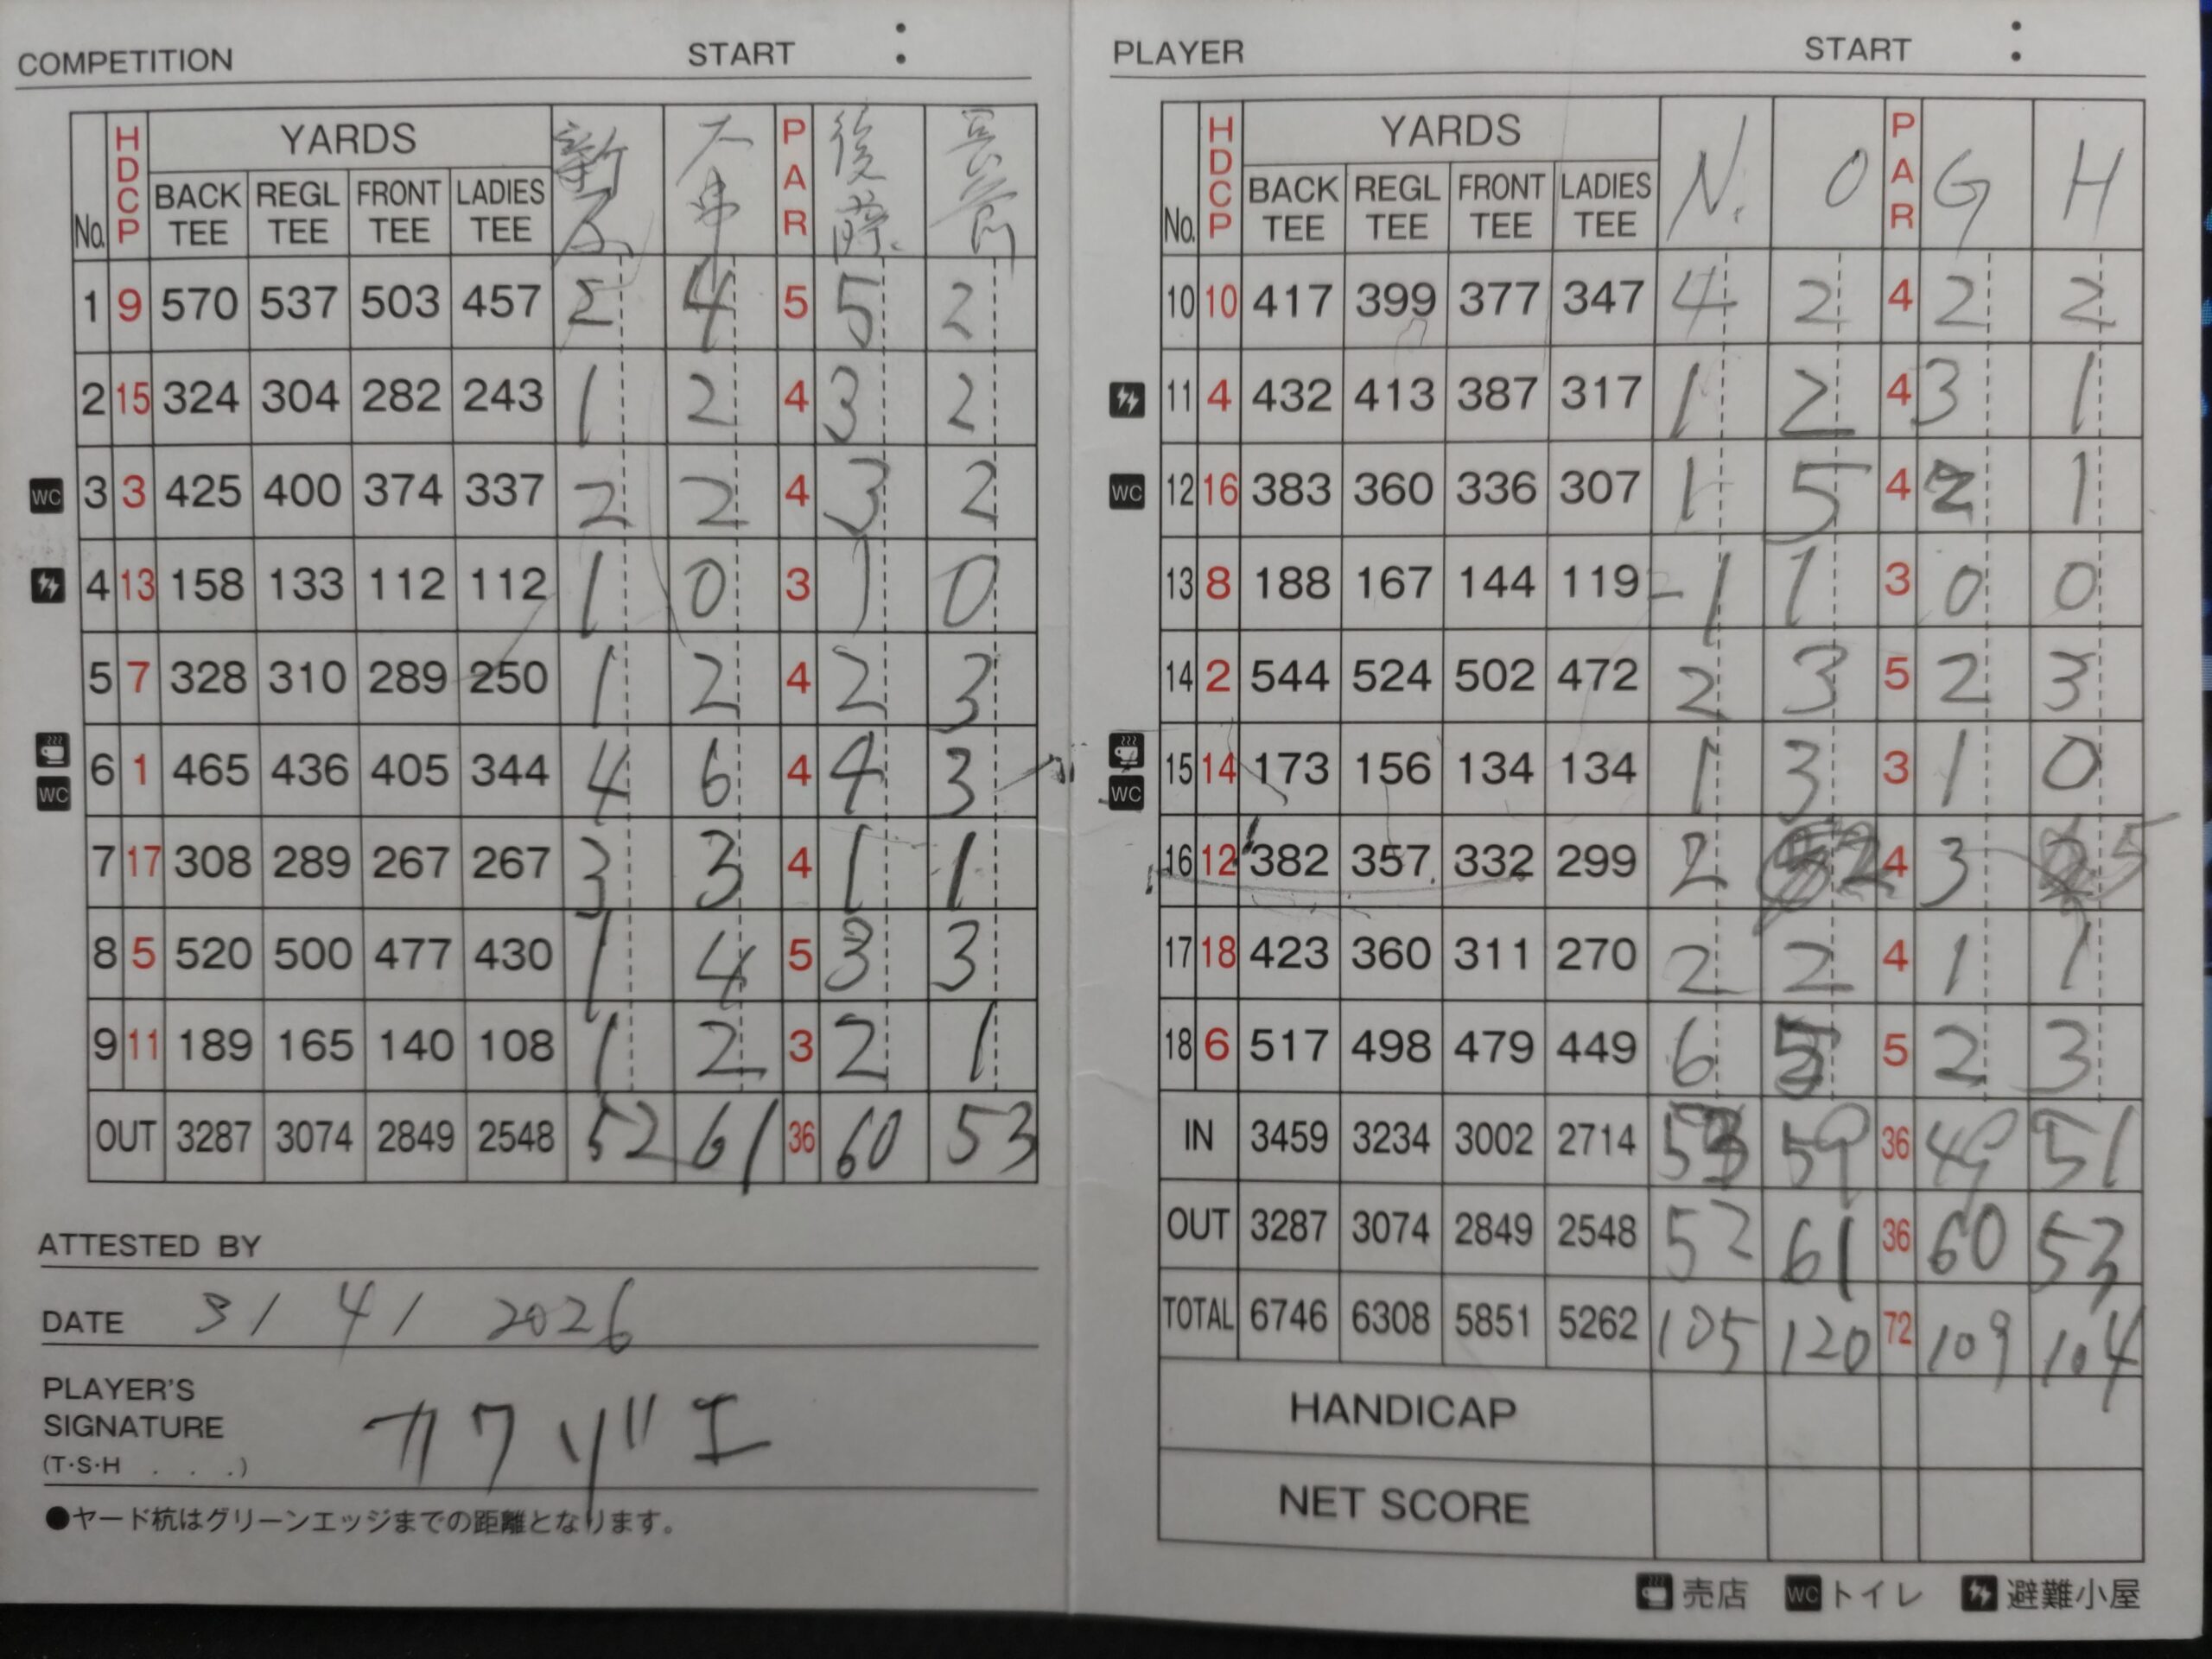 COMPETITION START :
No. HDCP YARDS 新 大串 PAR 後藤 長
BACK TEE REGL TEE FRONT TEE LADIES TEE
1 9 570 537 503 457 2 4 5 5 2
2 15 324 304 282 243 1 2 4 3 2
WC 3 3 425 400 374 337 2 2 4 3 2
4 13 158 133 112 112 1 0 3 1 0
5 7 328 310 289 250 1 2 4 2 3
WC 6 1 465 436 405 344 4 6 4 4 3
7 17 308 289 267 267 3 3 4 1 1
8 5 520 500 477 430 1 4 5 3 3
9 11 189 165 140 108 1 2 3 2 1
OUT 3287 3074 2849 2548 52 61 36 60 53
ATTESTED BY
DATE 3/ 4/ 2026
PLAYER'S
SIGNATURE
(T·S·H . . .)
●ヤード杭はグリーンエッジまでの距離となります。
PLAYER START :
No. HDCP YARDS N. O PAR G H
BACK TEE REGL TEE FRONT TEE LADIES TEE
10 10 417 399 377 347 4 2 4 2 2
11 4 432 413 387 317 1 2 4 3 1
WC 12 16 383 360 336 307 1 5 4 2 1
13 8 188 167 144 119 -1 1 3 0 0
14 2 544 524 502 472 2 3 5 2 3
WC 15 14 173 156 134 134 1 3 3 1 0
16 12 382 357 332 299 2 2 4 3 5
17 18 423 360 311 270 2 2 4 1 1
18 6 517 498 479 449 6 5 5 2 3
IN 3459 3234 3002 2714 53 59 36 49 51
OUT 3287 3074 2849 2548 52 61 36 60 53
TOTAL 6746 6308 5851 5262 105 120 72 109 104
HANDICAP
NET SCORE
売店 WC トイレ 避難小屋